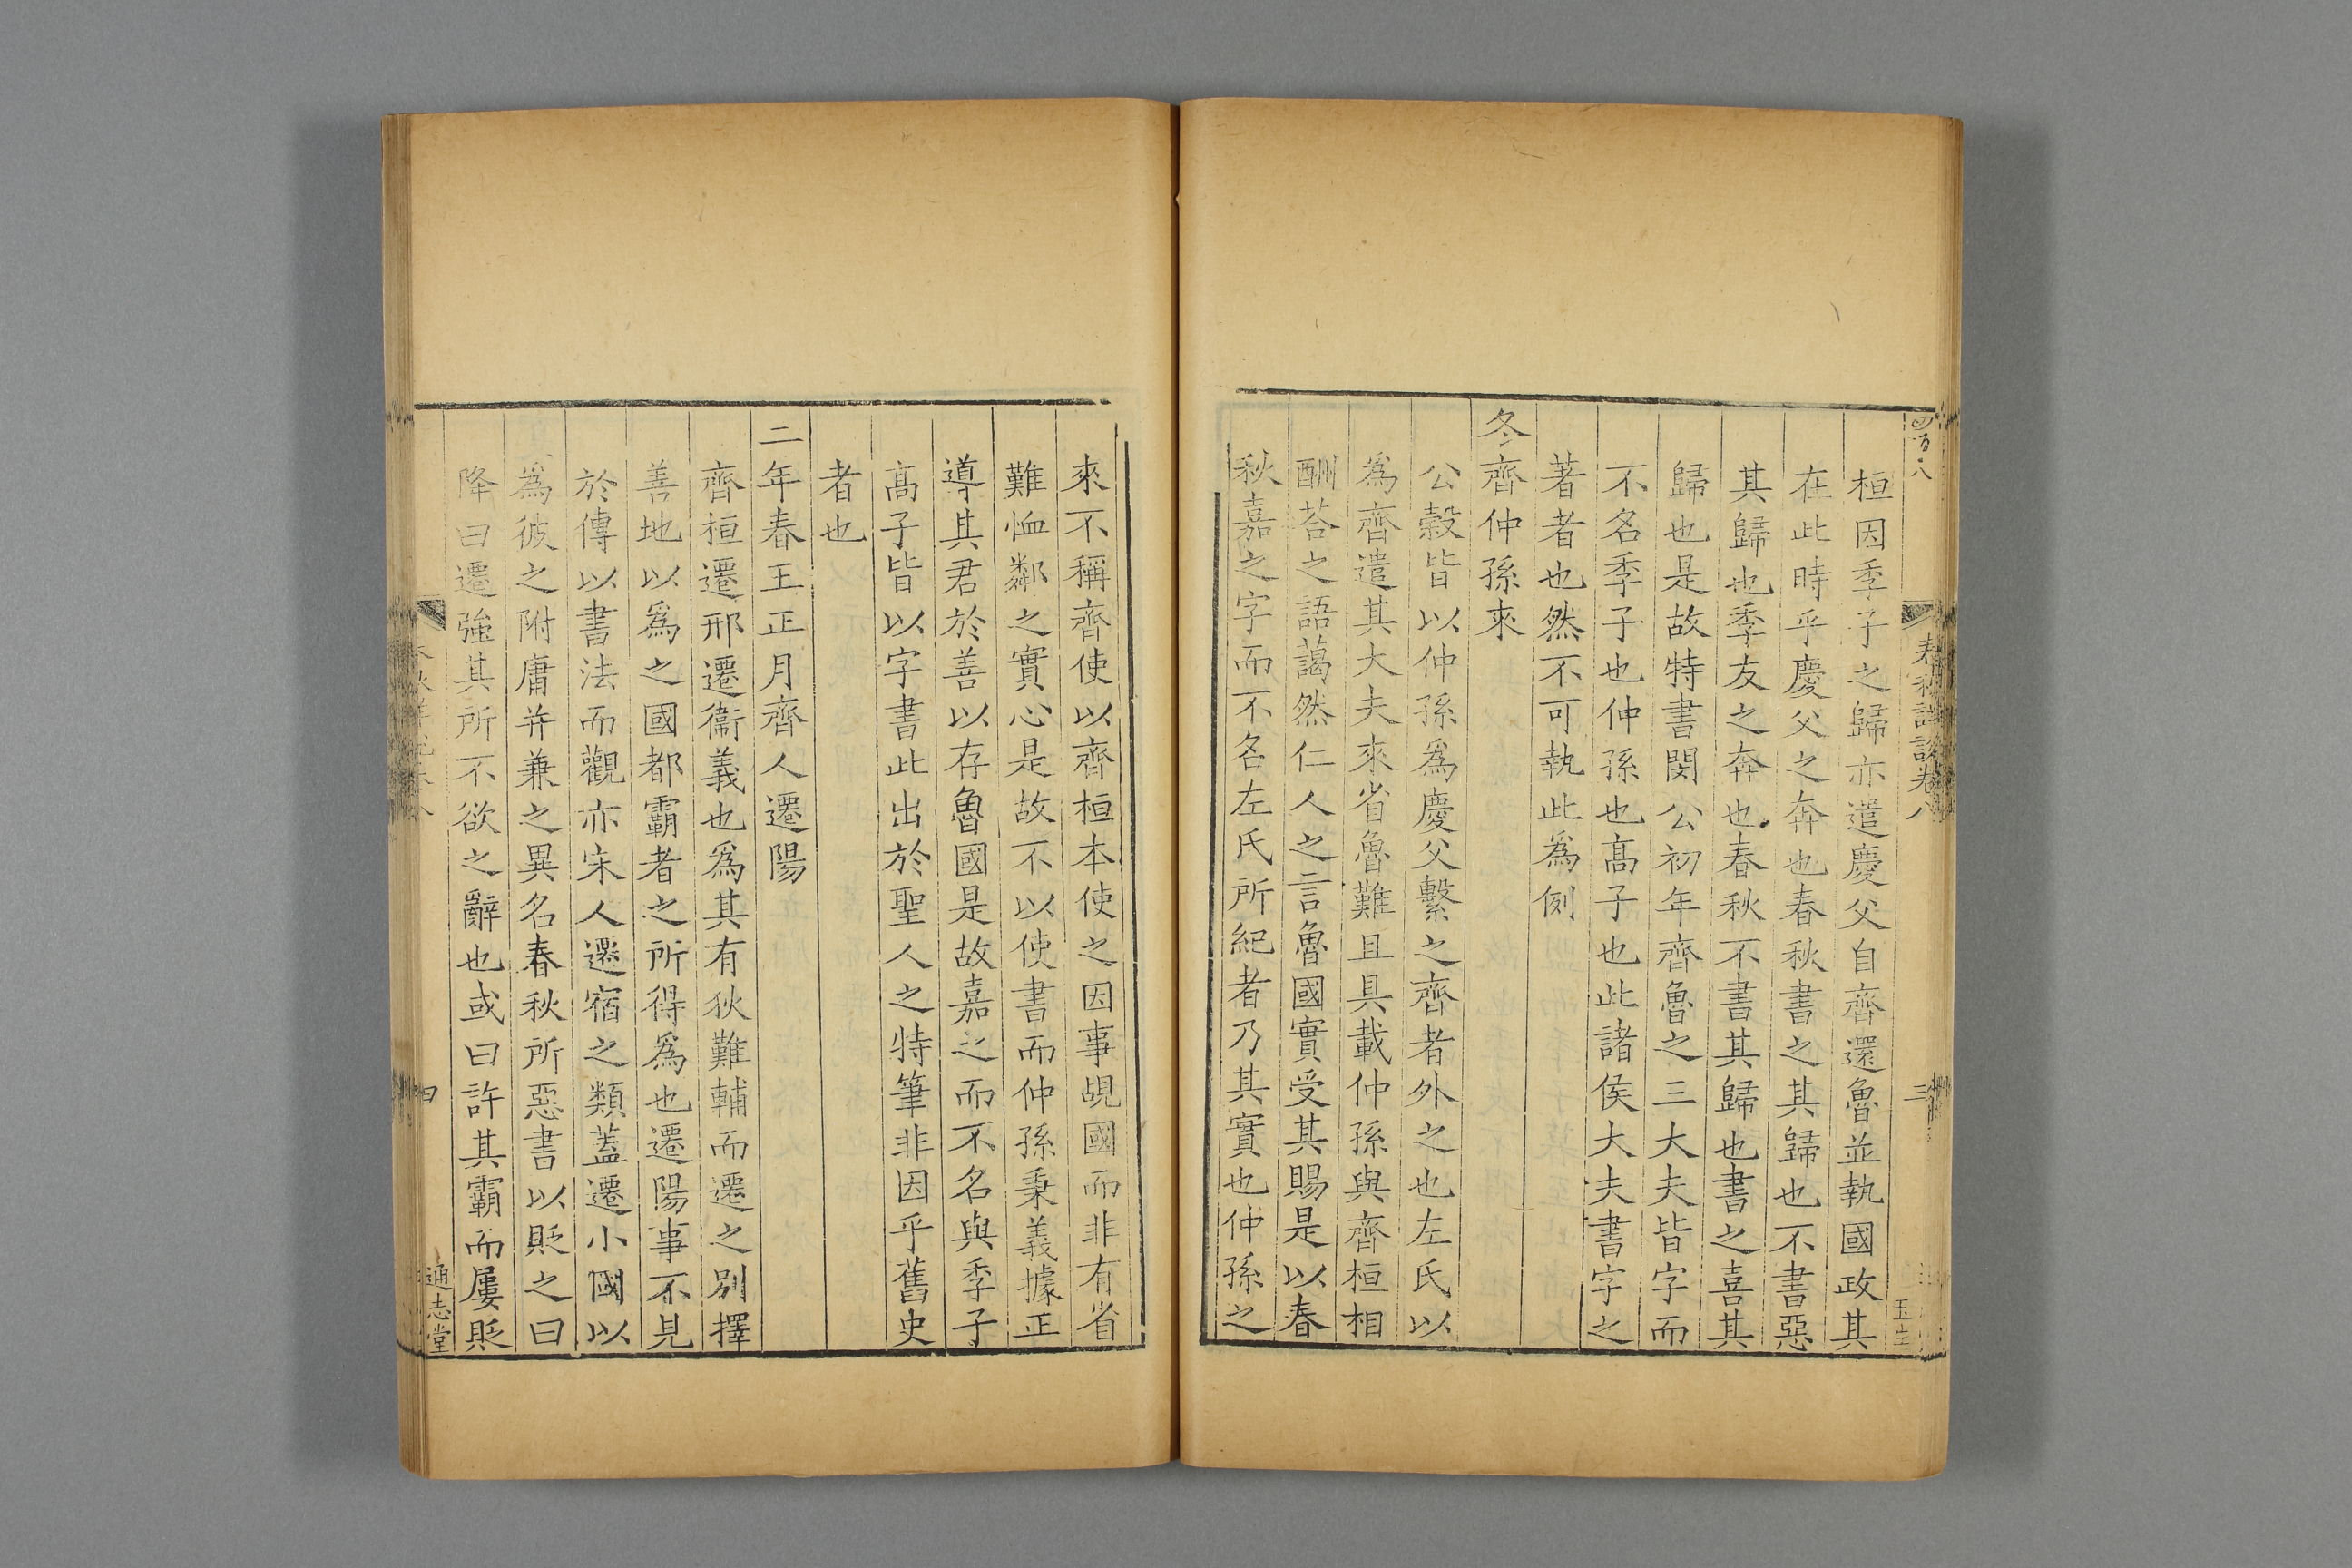 四百八
春秋詳說卷八
三
桓因季子之歸亦遣慶父自齊還魯並執國政其
在此時乎慶父之奔也春秋書之其歸也不書惡
其歸也季友之奔也春秋不書其歸也書之喜其
歸也是故特書閔公初年齊魯之三大夫皆字而
不名季子也仲孫也高子也此諸侯大夫書字之
著者也然不可執此為例
冬齊仲孫來
公穀皆以仲孫為慶父繫之齊者外之也左氏以
為齊遣其大夫來省魯難且具載仲孫與齊桓相
酬荅之語藹然仁人之言魯國實受其賜是以春
秋嘉之字而不名左氏所紀者乃其實也仲孫之
來不稱齊使以齊桓本使之因事覘國而非有省
難恤鄰之實心是故不以使書而仲孫秉義據正
導其君於善以存魯國是故嘉之而不名與季子
高子皆以字書此出於聖人之特筆非因乎舊史
者也
二年春王正月齊人遷陽
齊桓遷邢遷衞義也為其有狄難輔而遷之別擇
善地以為之國都霸者之所得為也遷陽事不見
於傳以書法而觀亦宋人遷宿之類蓋遷小國以
為彼之附庸并兼之異名春秋所惡書以貶之曰
降曰遷強其所不欲之辭也或曰許其霸而屢貶
春秋詳說卷八
四
通志堂